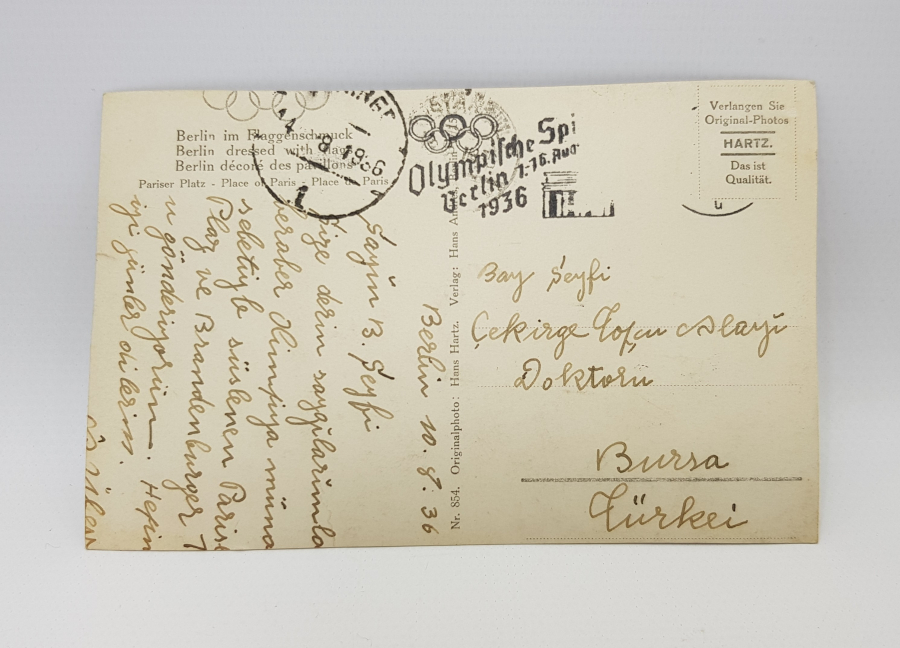 Berlin im Flaggenschmuck
Berlin dressed with flags
Berlin décoré des pavillons
Pariser Platz - Place of Paris - Place de Paris
14 8 1936
1
Olympische Spi
Berlin 1.-16. Aug.
1936
Verlangen Sie
Original-Photos
HARTZ.
Das ist
Qualität.
u
Nr. 854. Originalphoto: Hans Hartz. Verlag: Hans
Berlin 10.8.36
Sayın B. Seyfi
Size derin saygılarımla
beraber Olimpiya müna
sebetiyle süslenen Paris
Plaz ve Brandenburger T
u gönderiyorum. Hepin
iyi günler dilerim.
Bay Seyfi
Çekirge Topçu Alayı
Doktoru
Bursa
Türkei